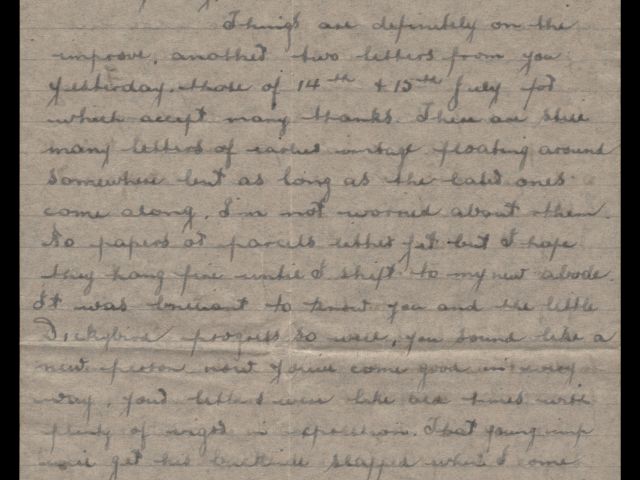 Things are definitely on the
improve, another two letters from you
yesterday, those of 14th & 15th July for
which accept many thanks. There are still
many letters of earlier vintage floating around
somewhere but as long as the later ones
come along, I'm not worried about them.
No papers or parcels either yet but I hope
they hang fire until I shift to my new abode.
It was brilliant to know you and the little
Dickybird progress so well, you sound like a
new person now you've come good in every
way, your letters were like old times with
plenty of vigor in expression. That young imp
will get his backside slapped when I come